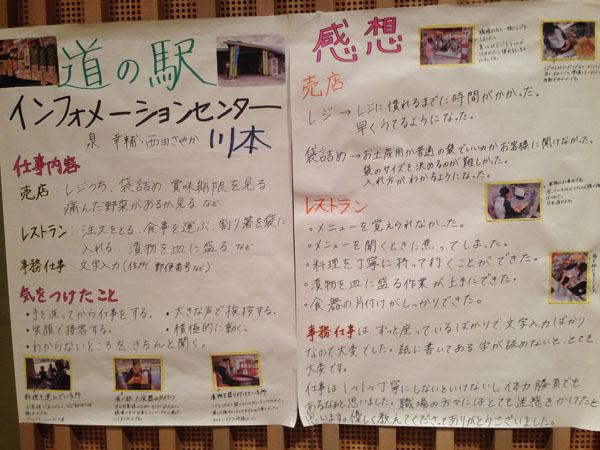 道の駅
インフォメーションセンター
川本
泉 幸輔・西田さやか
仕事内容
売店:レジうち、袋詰め 賞味期限を見る
痛んだ野菜があるか見る など
レストラン:注文をとる、食事を運ぶ、割り箸を袋に
入れる、漬物を皿に盛る など
事務仕事:文字入力(住所、郵便番号など)
気をつけたこと
・手を洗ってから仕事をする。・大きな声で挨拶する。
・笑顔で接客する。・積極的に動く。
・わからないところをきちんと聞く。
料理を運んでいる所
感想
売店
レジ→レジに慣れるまでに時間がかかった。
早くうてるようになった。
袋詰め→お土産用か普通の袋でいいのかお客様に聞けなかった。
袋のサイズを決めるのが難しかった。
入れ方がわかるようになった。
レストラン
・メニューを覚えられなかった。
・メニューを聞くときに焦ってしまった。
・料理を丁寧に持って行くことができた。
・漬物を皿に盛る作業が上手にできた。
・食器の片付けがしっかりできた。
事務仕事はずっと座っているばかりで文字入力ばかり
なので大変でした。紙に書いてある字が読めないと、とても
大変です。
仕事は1つ1つ丁寧にしないといけないし体力勝負でも
あるなぁと思いました。職場の方々にはとても迷惑をかけたと
思います。優しく教えてくださってありがとうございました。